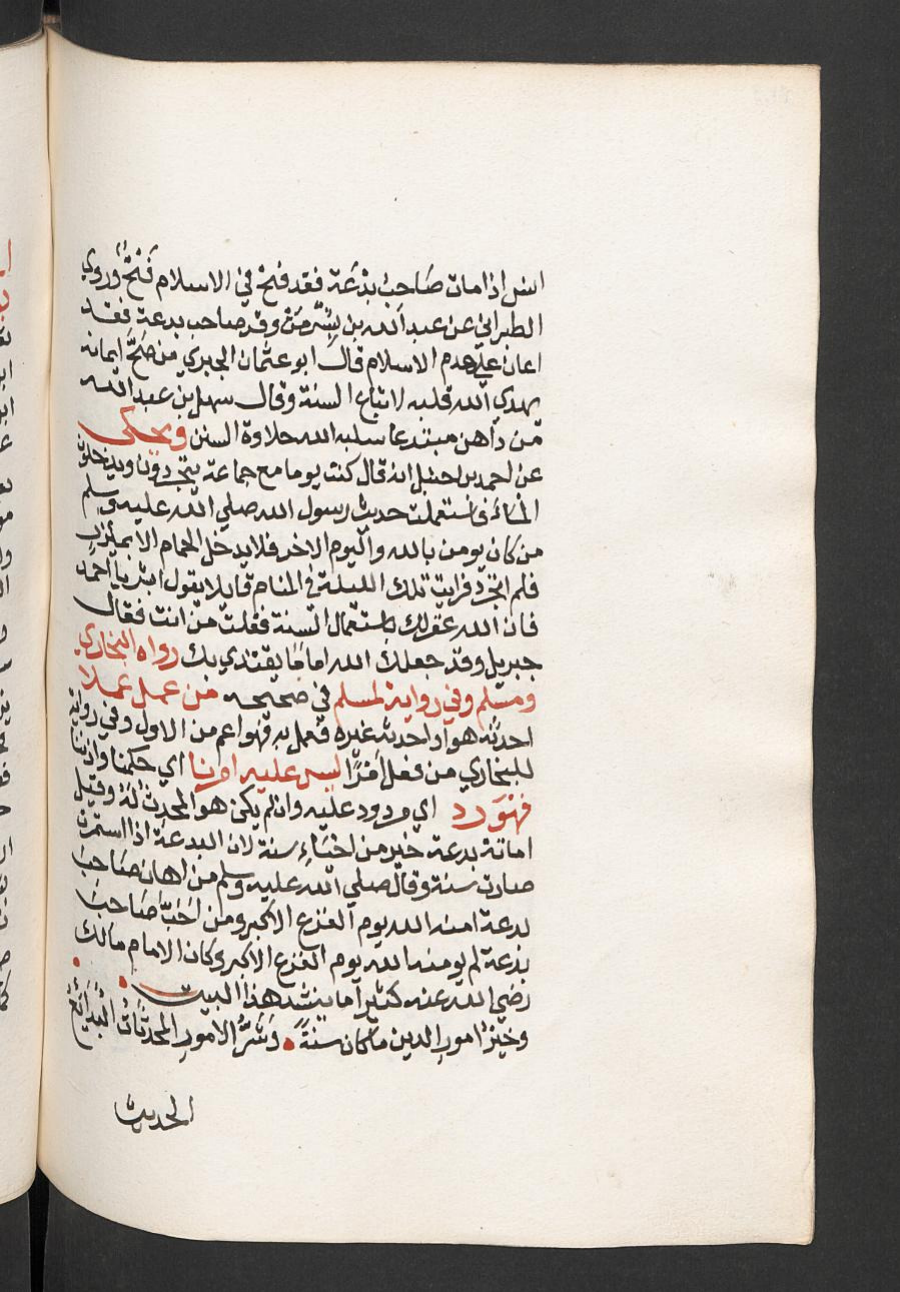 انس اذا مات صاحب بدعة فقد فتح في الاسلام فتح وروي
الطبراني عن عبد الله بن بشر من وقر صاحب بدعة فقد
اعان علي هدم الاسلام قال ابو عثمان الجبري من صح ايمانه
يهدي الله قلبه لاتباع السنة وقال سهل بن عبد الله
من داهن مبتدعا سلبه الله حلاوة السنن ويحكى
عن احمد بن حنبل انه قال كنت يوما مع جماعة يتجردون ويدخلون
الماء فاستعملت حديث رسول الله صلي الله عليه وسلم
من كان يومن بالله واليوم الاخر فلا يدخل الحمام الا بميزر
فلم اتجرد فرايت تلك الليلة في المنام قايلا يقول ابشر يا احمد
فان الله غفر لك باستعمال السنة فقلت من انت فقال
جبريل وقد جعلك الله اماما يقتدي بك رواه البخاري
ومسلم وفي رواية لمسلم في صحيحه من عمل عملا
احدثه هو او احدثه غيره فعمل به فهو اعم من الاول وفي رواية
للبخاري من فعل امرًا ليس عليه امرنا اي حكمنا واذننا
فهو رد اي مردود عليه وان لم يكن هو المحدث له وقيل
اماتة بدعة خير من احياء سنة لان البدعة اذا استمرت
صارت سنة وقال صلي الله عليه وسلم من اهان صاحب
بدعة امنه الله يوم الفزع الاكبر ومن احب صاحب
بدعة لم يومنه الله يوم الفزع الاكبر وكان الامام مالك
رضي الله عنه كثيرا ما ينشد هذا البيت
وخير امور الدين ما كان سنة وشر الامور المحدثات البدائع
الحديث